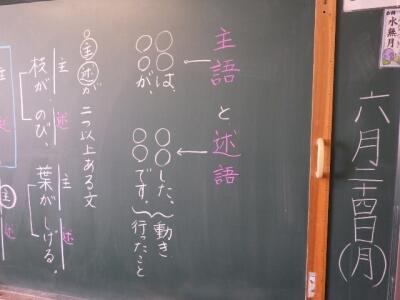 六月二十四日(月)
水無月
主語と述語
○○は、
○○が、
○○した。
○○です。
動き
行ったこと
○主述が二つ以上ある文
主 述 主 述
枝が、のび、葉がしげる。
主
述
主
述